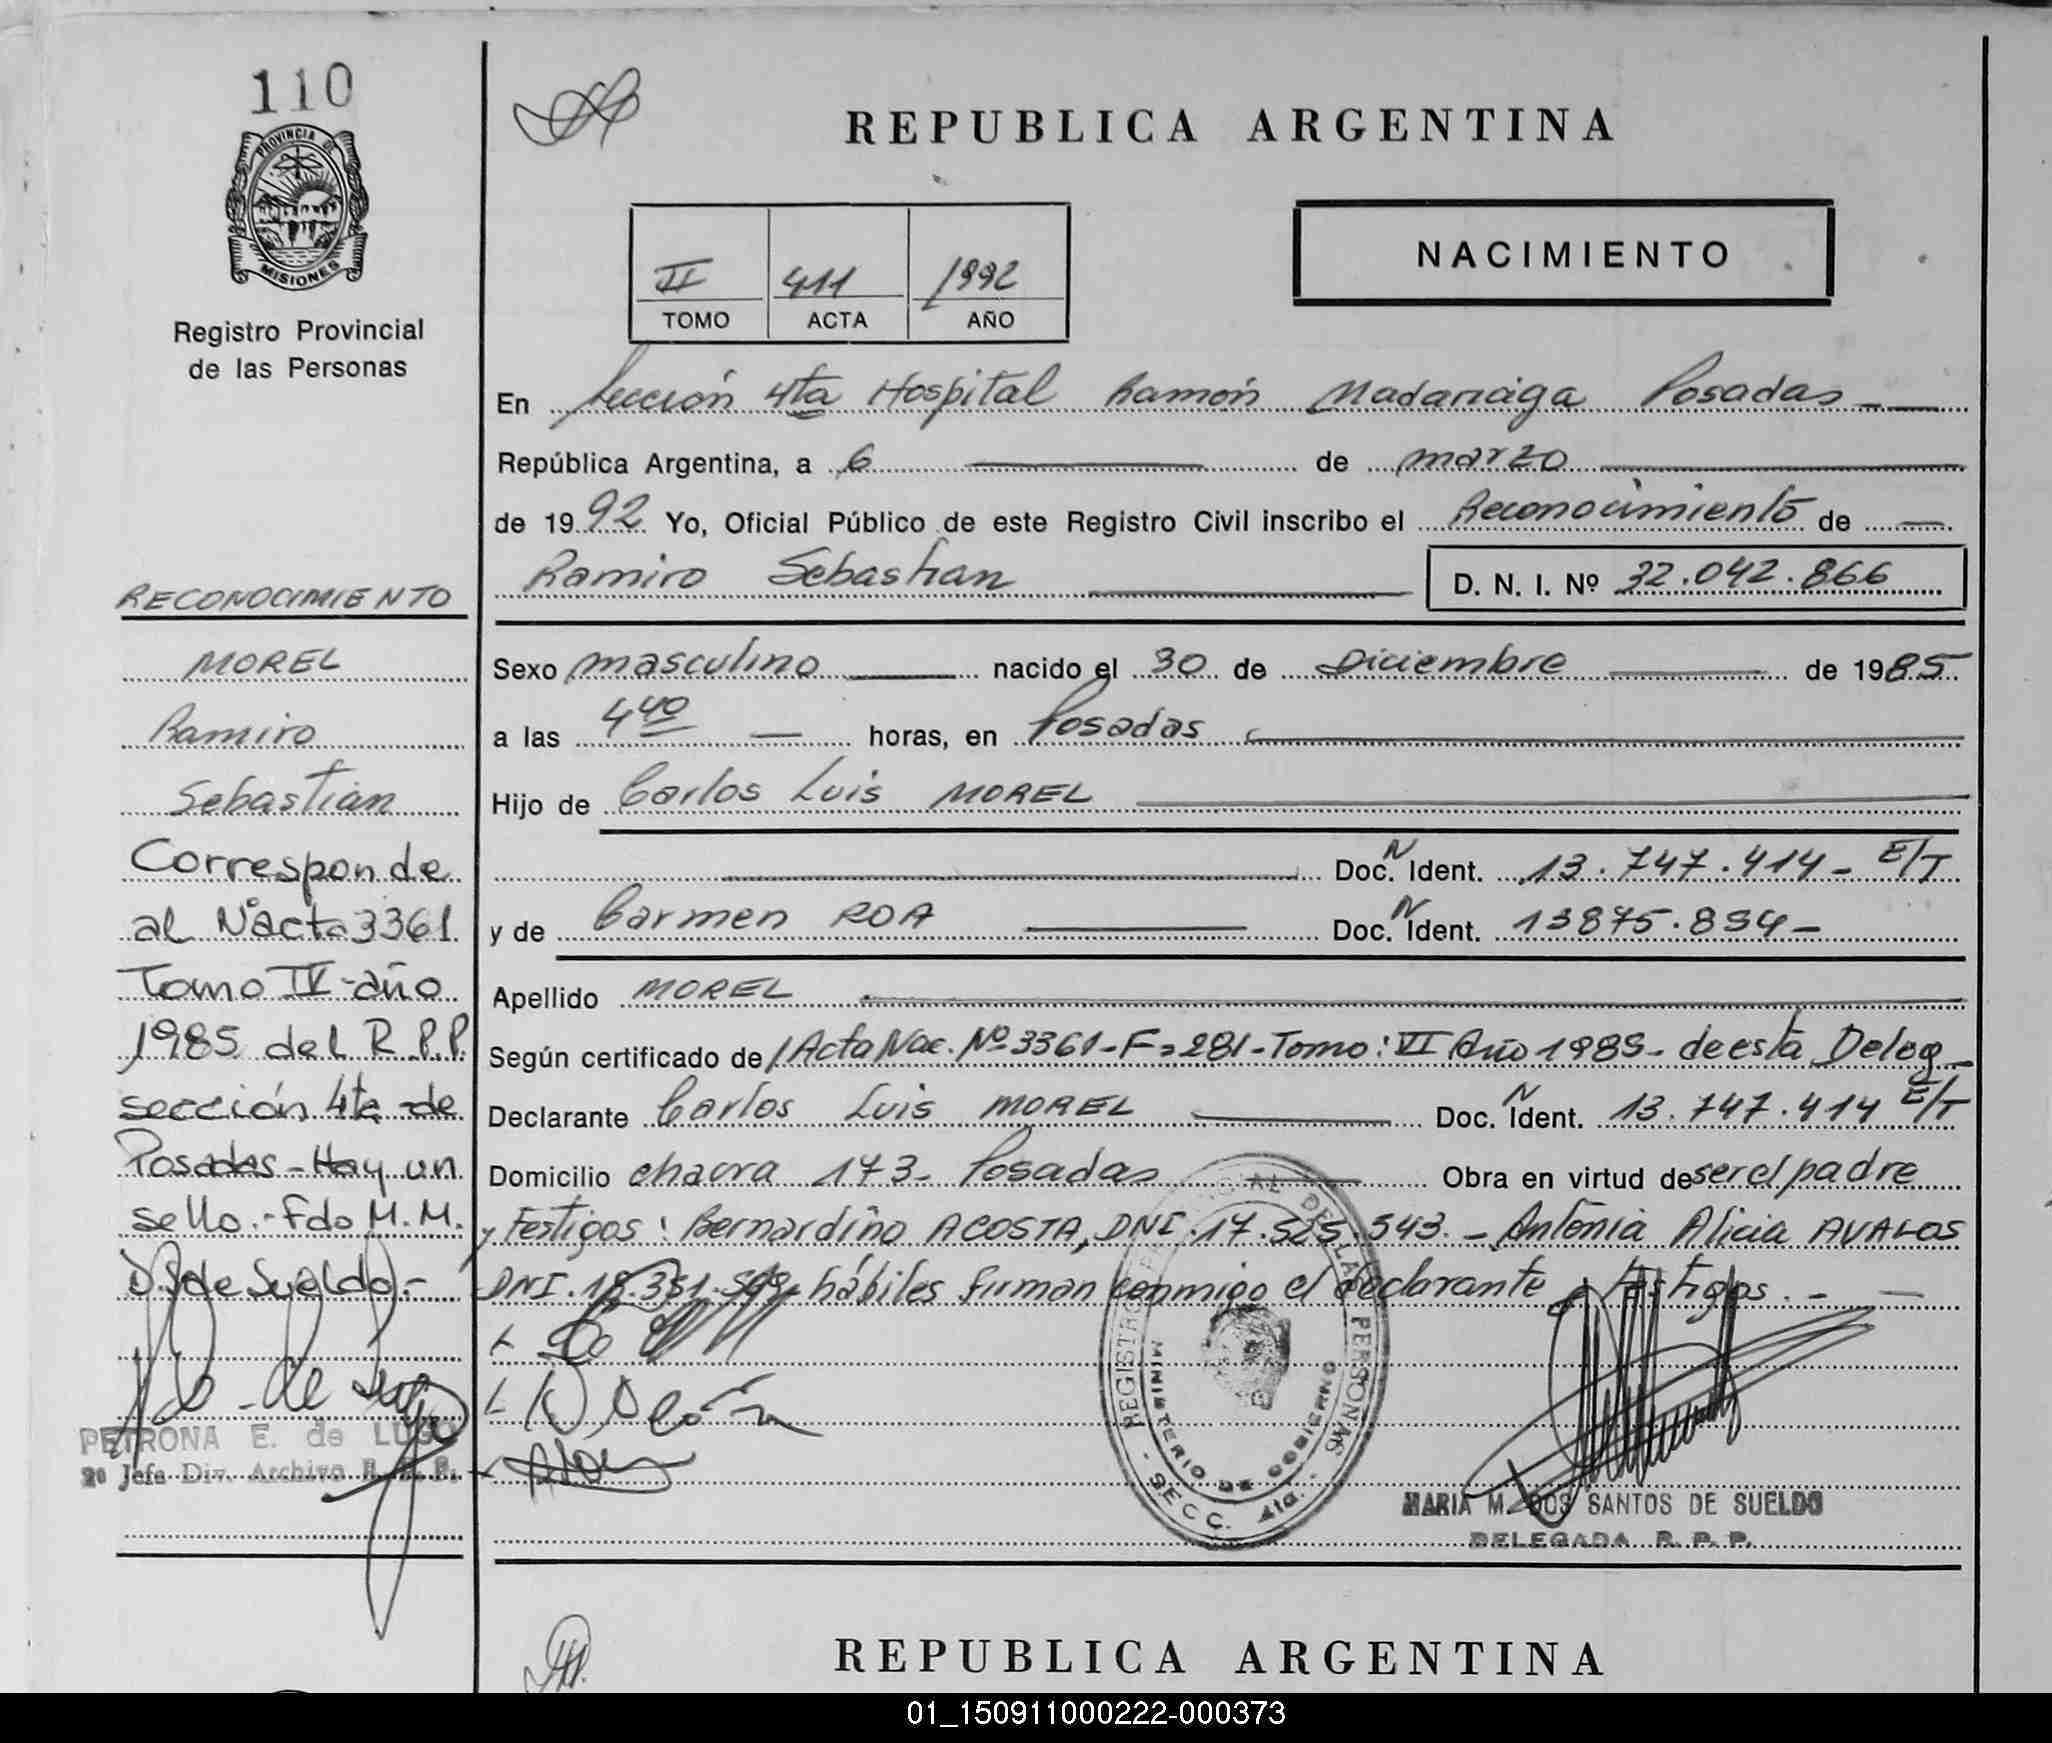 110
PROVINCIA DE
MISIONES
Registro Provincial
de las Personas
RECONOCIMIENTO
MOREL
Ramiro
Sebastian
Corresponde
al N° acta 3361
Tomo IV - año
1985 del R.P.P.
sección 4ta de
Posadas - Hay un
sello.- Fdo M.M.
D.S de Sueldo).-
PETRONA E. de LUGO
2º Jefe Div. Archivo R. P. P.
REPUBLICA ARGENTINA
II 411 1992
TOMO ACTA AÑO
NACIMIENTO
En Sección 4ta Hospital Ramón Madariaga Posadas
República Argentina, a 6 de marzo
de 1992 Yo, Oficial Público de este Registro Civil inscribo el Reconocimiento de
Ramiro Sebastian D. N. I. Nº 32.042.866
Sexo masculino nacido el 30 de Diciembre de 1985
a las 4 40 horas, en Posadas
Hijo de Carlos Luis MOREL
Doc. N Ident. 13.747.414 - E/T
y de Carmen ROA Doc. N Ident. 13875.894 -
Apellido MOREL
Según certificado de Acta Nac. Nº 3361 - F= 281 - Tomo: VI Año 1985 - de esta Deleg
Declarante Carlos Luis MOREL Doc. N Ident. 13.747.414 E/T
Domicilio chacra 173 - Posadas Obra en virtud de ser el padre
y Testigos: Bernardino ACOSTA, DNI. 17.525.543. - Antonia Alicia AVALOS
DNI. hábiles firman conmigo el declarante y testigos. -
REGISTRO PROVINCIAL DE LAS PERSONAS
MINISTERIO DE GOBIERNO
- SECC. 4ta. -
MARIA M. DOS SANTOS DE SUELDO
DELEGADA R. P. P.
REPUBLICA ARGENTINA
01_150911000222-000373